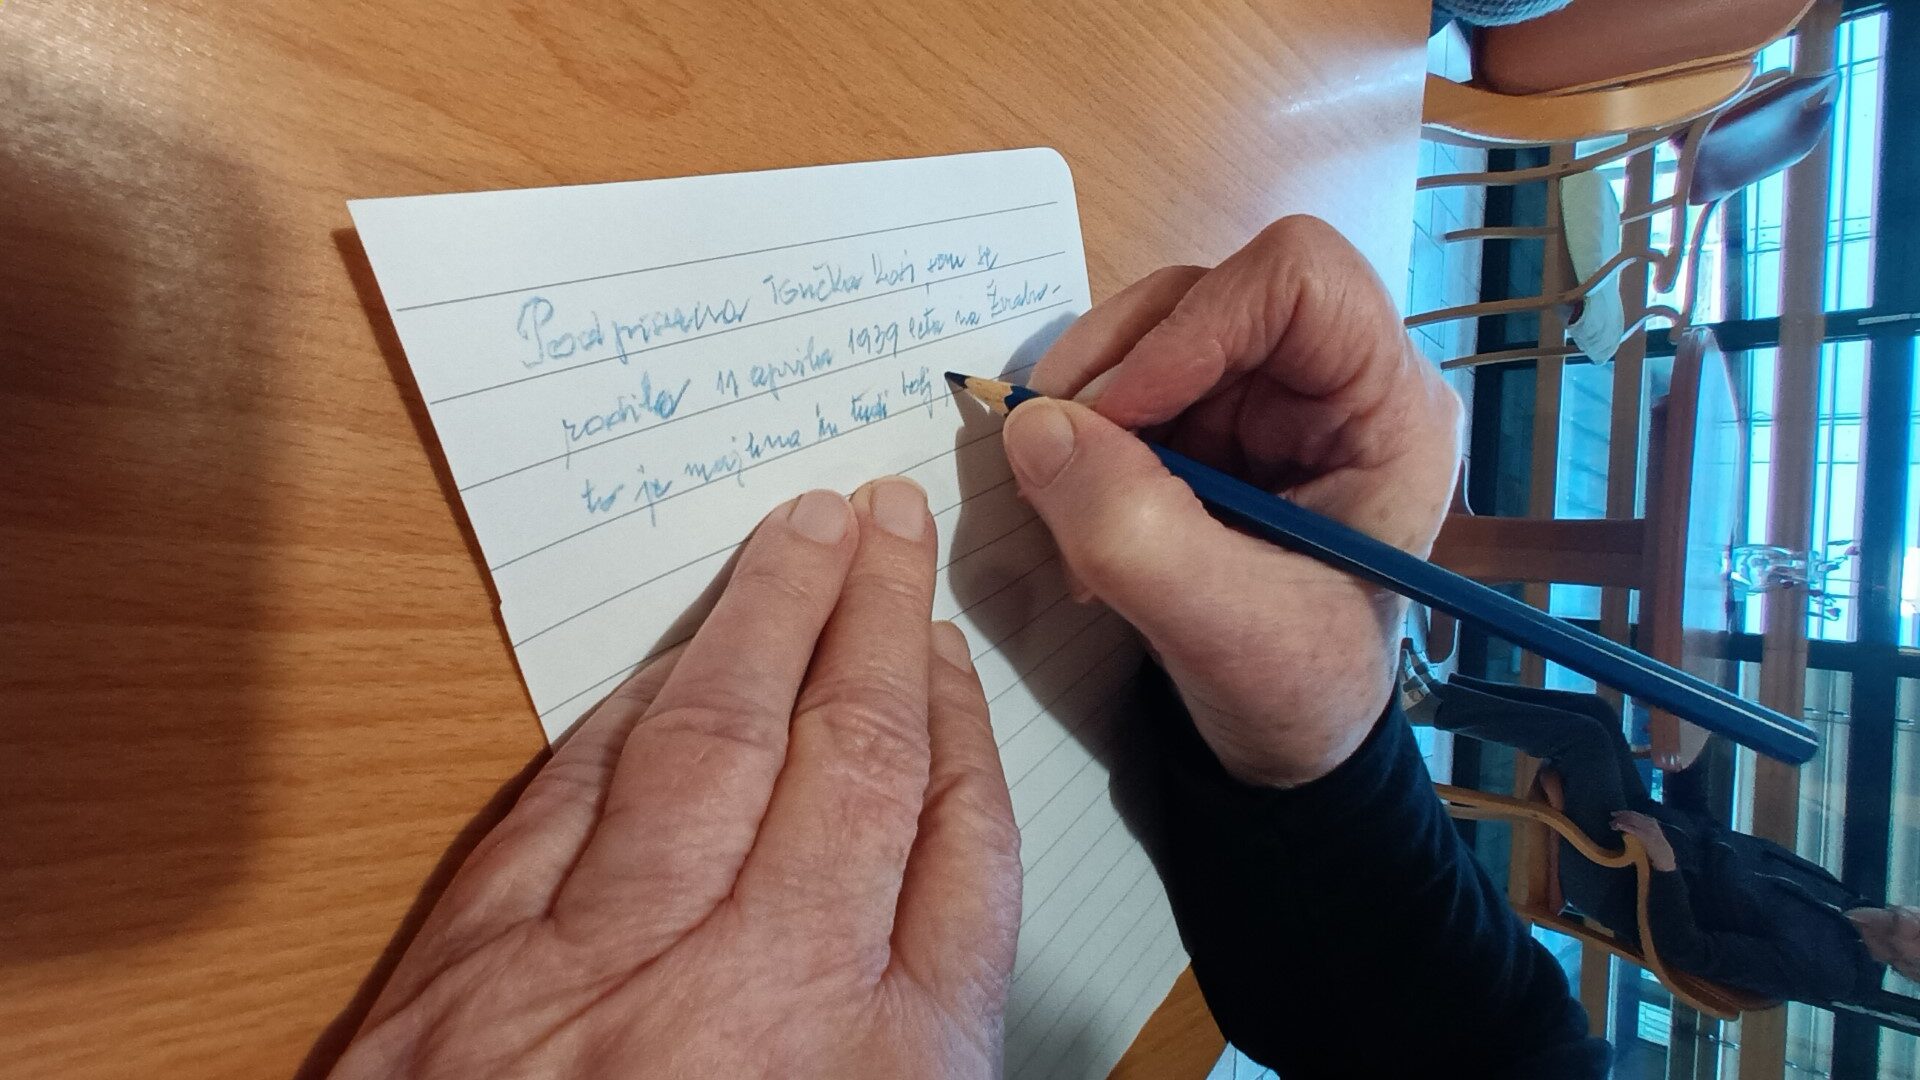 Podpisana Tončka Koši sem se
rodila 11 aprila 1939 leta na
to je majhna in tudi bolj